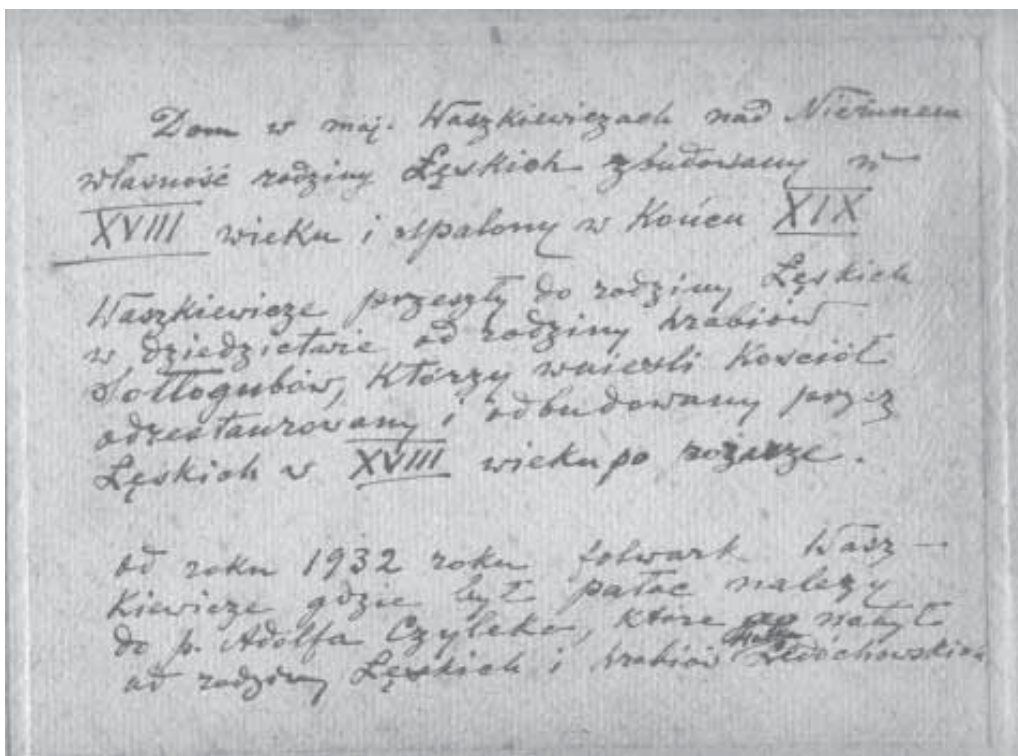 Dom w maj. Waszkiewiczach nad Niemnem
własność rodziny Łęskich zbudowany w
XVIII wieku i spalony w końcu XIX
Waszkiewicze przeszły do rodziny Łęskich
w dziedzictwie od rodziny hrabiów
Sołłogubów, którzy wnieśli Kościół
odrestaurowany i odbudowany przez
Łęskich w XVIII wieku po pożarze.
od roku 1932 roku folwark Wasz-
kiewicze gdzie był pałac należy
do p. Adolfa Czyleko, które nabył
od rodziny Łęskich i hrabiów Ledóchowskich